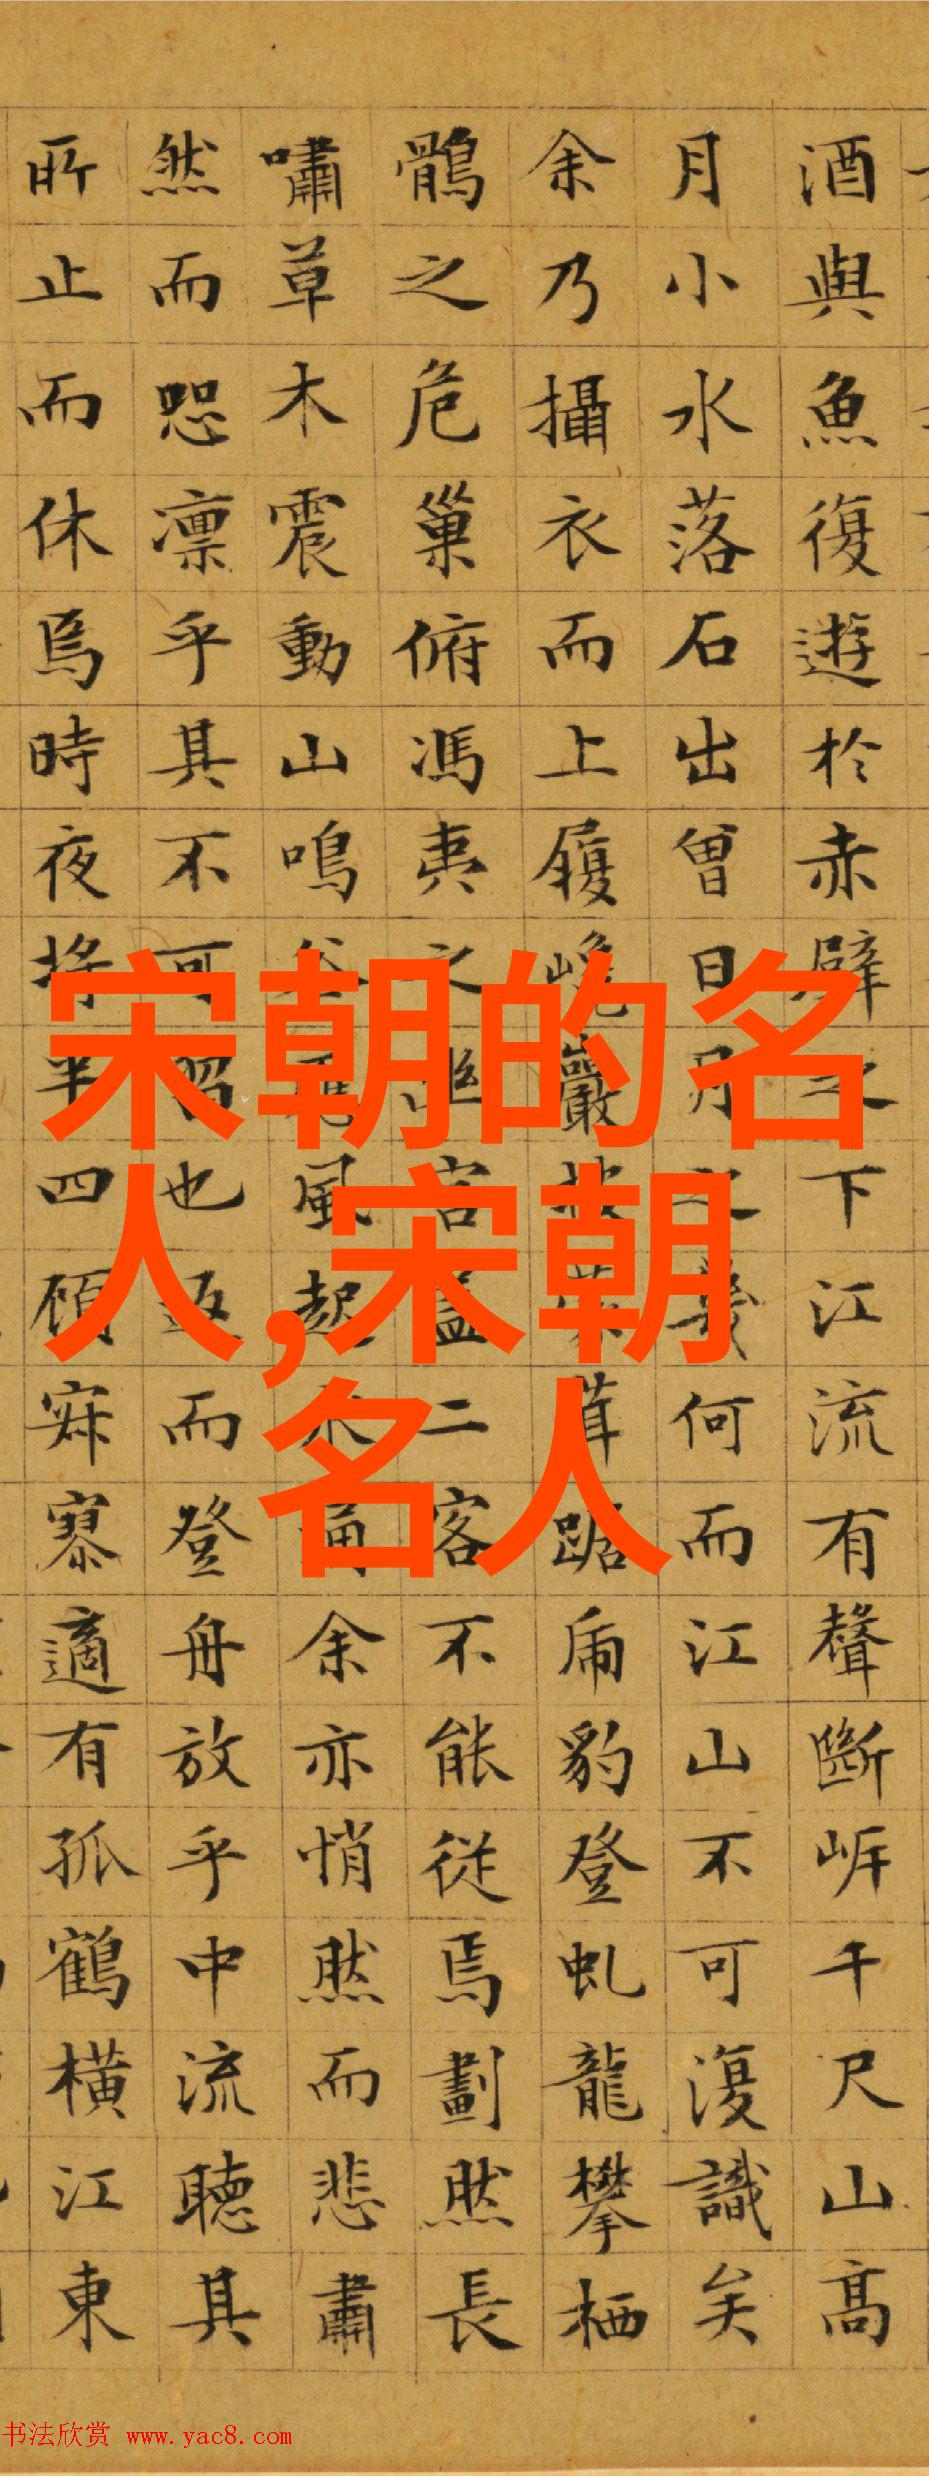 酒與魚復遊於赤壁之下江流有聲斷岸千尺山高
月小水落石出曾日月之幾何而江山不可復識矣
余乃攝衣而上履巉巖披蒙茸踞虎豹登虬龍攀栖
鶻之危巢俯馮夷之幽宮蓋二客不能從焉劃然長
嘯草木震動山鳴谷應風起水涌余亦悄然而悲肅
然而恐凛乎其不可留也返而登舟放乎中流聽其
所止而休焉時夜將半四顧寂寥適有孤鶴橫江東
宋朝的名
人,宋朝
名人
书法欣赏 www.yac8.com